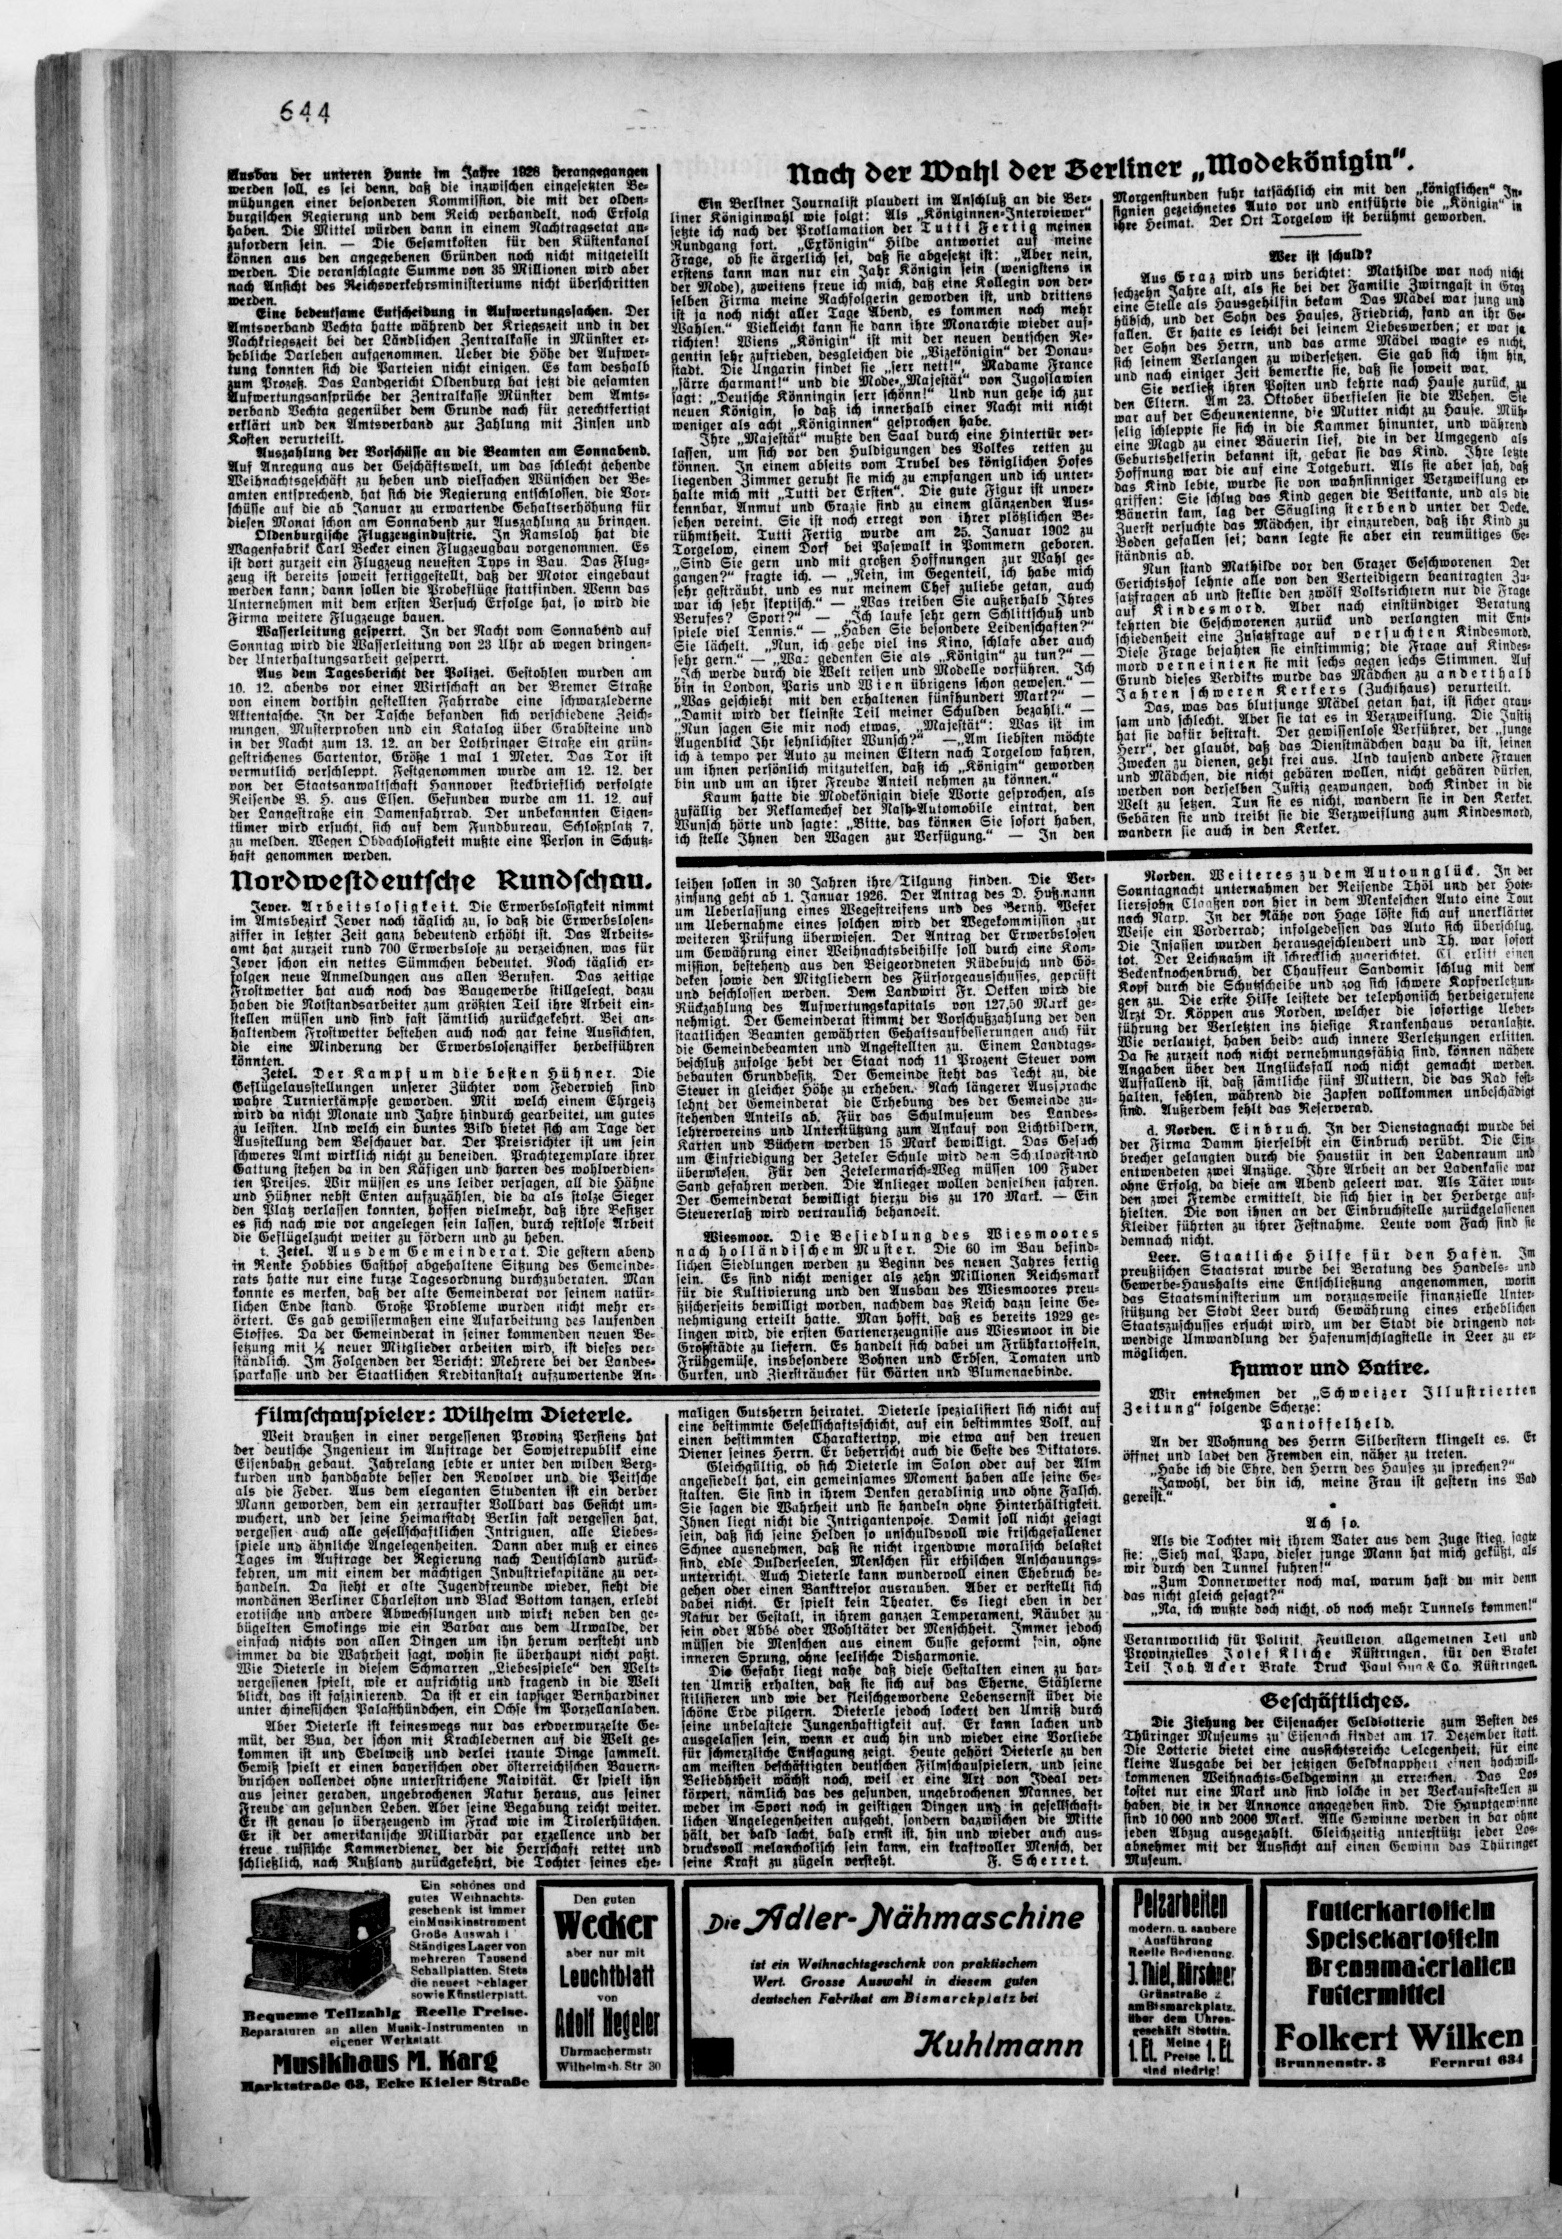 644
Ausbau der unteren Hunte im Jahre 1928 herangegangen
werden soll, es sei denn, daß die inzwischen eingesetzten Be-
mühungen einer besonderen Kommission, die mit der olden-
burgischen Regierung und dem Reich verhandelt, noch Erfolg
haben. Die Mittel würden dann in einem Nachtragsetat an-
zufordern sein. — Die Gesamtkosten für den Küstenkanal
können aus den angegebenen Gründen noch nicht mitgeteilt
werden. Die veranschlagte Summe von 35 Millionen wird aber
nach Ansicht des Reichsverkehrsministeriums nicht überschritten
werden.
Eine bedeutsame Entscheidung in Aufwertungssachen. Der
Amtsverband Vechta hatte während der Kriegszeit und in der
Nachkriegszeit bei der Ländlichen Zentralkasse in Münster er-
hebliche Darlehen aufgenommen. Ueber die Höhe der Aufwer-
tung konnten sich die Parteien nicht einigen. Es kam deshalb
zum Prozeß. Das Landgericht Oldenburg hat jetzt die gesamten
Aufwertungsansprüche der Zentralkasse Münster dem Amts-
verband Vechta gegenüber dem Grunde nach für gerechtfertigt
erklärt und den Amtsverband zur Zahlung mit Zinsen und
Kosten verurteilt.
Auszahlung der Vorschüsse an die Beamten am Sonnabend.
Auf Anregung aus der Geschäftswelt, um das schlecht gehende
Weihnachtsgeschäft zu heben und vielfachen Wünschen der Be-
amten entsprechend, hat sich die Regierung entschlossen, die Vor-
schüsse auf die ab Januar zu erwartende Gehaltserhöhung für
diesen Monat schon am Sonnabend zur Auszahlung zu bringen.
Oldenburgische Flugzeugindustrie. In Ramsloh hat die
Wagenfabrik Carl Becker einen Flugzeugbau vorgenommen. Es
ist dort zurzeit ein Flugzeug neuesten Typs in Bau. Das Flug-
zeug ist bereits soweit fertiggestellt, daß der Motor eingebaut
werden kann; dann sollen die Probeflüge stattfinden. Wenn das
Unternehmen mit dem ersten Versuch Erfolge hat, so wird die
Firma weitere Flugzeuge bauen.
Wasserleitung gesperrt. In der Nacht vom Sonnabend auf
Sonntag wird die Wasserleitung von 23 Uhr ab wegen dringen-
der Unterhaltungsarbeit gesperrt.
Aus dem Tagesbericht der Polizei. Gestohlen wurden am
10. 12. abends vor einer Wirtschaft an der Bremer Straße
von einem dorthin gestellten Fahrrade eine schwarzlederne
Aktentasche. In der Tasche befanden sich verschiedene Zeich-
nungen, Musterproben und ein Katalog über Grabsteine und
in der Nacht zum 13. 12. an der Lothringer Straße ein grün-
gestrichenes Gartentor, Größe 1 mal 1 Meter. Das Tor ist
vermutlich verschleppt. Festgenommen wurde am 12. 12. der
von der Staatsanwaltschaft Hannover steckbrieflich verfolgte
Reisende B. H. aus Elsen. Gefunden wurde am 11. 12. auf
der Langestraße ein Damenfahrrad. Der unbekannten Eigen-
tümer wird ersucht, sich auf dem Fundbureau, Schloßplatz 7,
zu melden. Wegen Obdachlosigkeit mußte eine Person in Schutz-
haft genommen werden.
Nach der Wahl der Berliner „Modekönigin“.
Ein Berliner Journalist plaudert im Anschluß an die Ber-
liner Königinwahl wie folgt: Als „Königinnen-Interviewer“
setzte ich nach der Proklamation der Tutti Fertig meinen
Rundgang fort. „Exkönigin“ Hilde antwortet auf meine
Frage, ob sie ärgerlich sei, daß sie abgesetzt ist: „Aber nein,
erstens kann man nur ein Jahr Königin sein (wenigstens in
der Mode), zweitens freue ich mich, daß eine Kollegin von der-
selben Firma meine Nachfolgerin geworden ist, und drittens
ist ja noch nicht aller Tage Abend, es kommen noch mehr
Wahlen.“ Vielleicht kann sie dann ihre Monarchie wieder auf-
richten! Wiens „Königin“ ist mit der neuen deutschen Re-
gentin sehr zufrieden, desgleichen die „Vizekönigin“ der Donau-
stadt. Die Ungarin findet sie „serr nett!“, Madame France
„särre charmant!“ und die Mode-„Majestät“ von Jugoslawien
sagt: „Deutsche Könningin serr schönn!“ Und nun gehe ich zur
neuen Königin, so daß ich innerhalb einer Nacht mit nicht
weniger als acht „Königinnen“ gesprochen habe.
Ihre „Majestät“ mußte den Saal durch eine Hintertür ver-
lassen, um sich vor den Huldigungen des Volkes retten zu
können. In einem abseits vom Trubel des königlichen Hofes
liegenden Zimmer geruht sie mich zu empfangen und ich unter-
halte mich mit „Tutti der Ersten“. Die gute Figur ist unver-
kennbar, Anmut und Grazie sind zu einem glänzenden Aus-
sehen vereint. Sie ist noch erregt von ihrer plötzlichen Be-
rühmtheit. Tutti Fertig wurde am 25. Januar 1902 zu
Torgelow, einem Dorf bei Pasewalk in Pommern geboren.
„Sind Sie gern und mit großen Hoffnungen zur Wahl ge-
gangen?“ fragte ich. — „Nein, im Gegenteil, ich habe mich
sehr gesträubt, und es nur meinem Chef zuliebe getan, auch
war ich sehr skeptisch.“ — „Was treiben Sie außerhalb Ihres
Berufes? Sport?“ — „Ich laufe sehr gern Schlittschuh und
spiele viel Tennis.“ — „Haben Sie besondere Leidenschaften?“
Sie lächelt. „Nun, ich gehe viel ins Kino, schlafe aber auch
sehr gern.“ — „Was gedenken Sie als „Königin“ zu tun?“ —
„Ich werde durch die Welt reisen und Modelle vorführen. Ich
bin in London, Paris und Wien übrigens schon gewesen.“ —
„Was geschieht mit den erhaltenen fünfhundert Mark?“ —
„Damit wird der kleinste Teil meiner Schulden bezahlt.“ —
„Nun sagen Sie mir noch etwas, „Majestät“: Was ist im
Augenblick Ihr sehnlichster Wunsch?“ — „Am liebsten möchte
ich à tempo per Auto zu meinen Eltern nach Torgelow fahren,
um ihnen persönlich mitzuteilen, daß ich „Königin“ geworden
bin und um an ihrer Freude Anteil nehmen zu können.“
Kaum hatte die Modekönigin diese Worte gesprochen, als
zufällig der Reklamechef der Nash-Automobile eintrat, den
Wunsch hörte und sagte: „Bitte, das können Sie sofort haben,
ich stelle Ihnen den Wagen zur Verfügung.“ — In den
Morgenstunden fuhr tatsächlich ein mit den „königlichen“ In-
signien gezeichnetes Auto vor und entführte die „Königin“ in
ihre Heimat. Der Ort Torgelow ist berühmt geworden.
Wer ist schuld?
Aus Graz wird uns berichtet: Mathilde war noch nicht
sechzehn Jahre alt, als sie bei der Familie Zwirngast in Graz
eine Stelle als Hausgehilfin bekam. Das Mädel war jung und
hübsch, und der Sohn des Hauses, Friedrich, fand an ihr Ge-
fallen. Er hatte es leicht bei seinem Liebeswerben; er war ja
der Sohn des Herrn, und das arme Mädel wagte es nicht,
sich seinem Verlangen zu widersetzen. Sie gab sich ihm hin,
und nach einiger Zeit bemerkte sie, daß sie soweit war.
Sie verließ ihren Posten und kehrte nach Hause zurück, zu
den Eltern. Am 23. Oktober überfielen sie die Wehen. Sie
war auf der Scheunentenne, die Mutter nicht zu Hause. Müh-
selig schleppte sie sich in die Kammer hinunter, und während
eine Magd zu einer Bäuerin lief, die in der Umgegend als
Geburtshelferin bekannt ist, gebar sie das Kind. Ihre letzte
Hoffnung war die auf eine Totgeburt. Als sie aber sah, daß
das Kind lebte, wurde sie von wahnsinniger Verzweiflung er-
griffen: Sie schlug das Kind gegen die Bettkante, und als die
Bäuerin kam, lag der Säugling sterbend unter der Decke.
Zuerst versuchte das Mädchen, ihr einzureden, daß ihr Kind zu
Boden gefallen sei; dann legte sie aber ein reumütiges Ge-
ständnis ab.
Nun stand Mathilde vor den Grazer Geschworenen. Der
Gerichtshof lehnte alle von den Verteidigern beantragten Zu-
satzfragen ab und stellte den zwölf Volksrichtern nur die Frage
auf Kindesmord. Aber nach einstündiger Beratung
kehrten die Geschworenen zurück und verlangten mit Ent-
schiedenheit eine Zusatzfrage auf versuchten Kindesmord.
Diese Frage bejahten sie einstimmig; die Frage auf Kindes-
mord verneinten sie mit sechs gegen sechs Stimmen. Auf
Grund dieses Verdikts wurde das Mädchen zu anderthalb
Jahren schweren Kerkers (Zuchthaus) verurteilt.
Das, was das blutjunge Mädel getan hat, ist sicher grau-
sam und schlecht. Aber sie tat es in Verzweiflung. Die Justiz
hat sie dafür bestraft. Der gewissenlose Verführer, der „junge
Herr“, der glaubt, daß das Dienstmädchen dazu da ist, seinen
Zwecken zu dienen, geht frei aus. Und tausend andere Frauen
und Mädchen, die nicht gebären wollen, nicht gebären dürfen,
werden von derselben Justiz gezwungen, doch Kinder in die
Welt zu setzen. Tun sie es nicht, wandern sie in den Kerker.
Gebären sie und treibt sie die Verzweiflung zum Kindesmord,
wandern sie auch in den Kerker.
Nordwestdeutsche Rundschau.
Jever. Arbeitslosigkeit. Die Erwerbslosigkeit nimmt
im Amtsbezirk Jever noch täglich zu, so daß die Erwerbslosen-
ziffer in letzter Zeit ganz bedeutend erhöht ist. Das Arbeits-
amt hat zurzeit rund 700 Erwerbslose zu verzeichnen, was für
Jever schon ein nettes Sümmchen bedeutet. Noch täglich er-
folgen neue Anmeldungen aus allen Berufen. Das zeitige
Frostwetter hat auch noch das Baugewerbe stillgelegt, dazu
haben die Notstandsarbeiter zum größten Teil ihre Arbeit ein-
stellen müssen und sind fast sämtlich zurückgekehrt. Bei an-
haltendem Frostwetter bestehen auch noch gar keine Aussichten,
die eine Minderung der Erwerbslosenziffer herbeiführen
könnten.
Zetel. Der Kampf um die besten Hühner. Die
Geflügelausstellungen unserer Züchter vom Federvieh sind
wahre Turnierkämpfe geworden. Mit welch einem Ehrgeiz
wird da nicht Monate und Jahre hindurch gearbeitet, um gutes
zu leisten. Und welch ein buntes Bild bietet sich am Tage der
Ausstellung dem Beschauer dar. Der Preisrichter ist um sein
schweres Amt wirklich nicht zu beneiden. Prachtexemplare ihrer
Gattung stehen da in den Käfigen und harren des wohlverdien-
ten Preises. Wir müssen es uns leider versagen, all die Hähne
und Hühner nebst Enten aufzuzählen, die da als stolze Sieger
den Platz verlassen konnten, hoffen vielmehr, daß ihre Besitzer
es sich nach wie vor angelegen sein lassen, durch restlose Arbeit
die Geflügelzucht weiter zu fördern und zu heben.
t. Zetel. Aus dem Gemeinderat. Die gestern abend
in Renke Hobbies Gasthof abgehaltene Sitzung des Gemeinde-
rats hatte nur eine kurze Tagesordnung durchzuberaten. Man
konnte es merken, daß der alte Gemeinderat vor seinem natür-
lichen Ende stand. Große Probleme wurden nicht mehr er-
örtert. Es gab gewissermaßen eine Aufarbeitung des laufenden
Stoffes. Da der Gemeinderat in seiner kommenden neuen Be-
setzung mit neuer Mitglieder arbeiten wird, ist dieses ver-
ständlich. Im Folgenden der Bericht: Mehrere bei der Landes-
sparkasse und der Staatlichen Kreditanstalt aufzuwertende An-
leihen sollen in 30 Jahren ihre Tilgung finden. Die Ver-
zinsung geht ab 1. Januar 1926. Der Antrag des D. Hußmann
um Ueberlassung eines Wegestreifens und des Bernh. Wefer
um Uebernahme eines solchen wird der Wegekommission zur
weiteren Prüfung überwiesen. Der Antrag der Erwerbslosen
um Gewährung einer Weihnachtsbeihilfe soll durch eine Kom-
mission, bestehend aus den Beigeordneten Rüdebusch und Gö-
deken sowie den Mitgliedern des Fürsorgeausschusses, geprüft
und beschlossen werden. Dem Landwirt Fr. Oetken wird die
Rückzahlung des Aufwertungskapitals von 127,50 Mark ge-
nehmigt. Der Gemeinderat stimmt der Vorschußzahlung der den
staatlichen Beamten gewährten Gehaltsaufbesserungen auch für
die Gemeindebeamten und Angestellten zu. Einem Landtags-
beschluß zufolge hebt der Staat noch 11 Prozent Steuer vom
bebauten Grundbesitz. Der Gemeinde steht das Recht zu, die
Steuer in gleicher Höhe zu erheben. Nach längerer Aussprache
lehnt der Gemeinderat die Erhebung des der Gemeinde zu-
stehenden Anteils ab. Für das Schulmuseum des Landes-
lehrervereins und Unterstützung zum Ankauf von Lichtbildern,
Karten und Büchern werden 15 Mark bewilligt. Das Gesuch
um Einfriedigung der Zeteler Schule wird dem Schulvorstand
überwiesen. Für den Zetelermarsch-Weg müssen 100 Fuder
Sand gefahren werden. Die Anlieger wollen denselben fahren.
Der Gemeinderat bewilligt hierzu bis zu 170 Mark. — Ein
Steuererlaß wird vertraulich behandelt.
Wiesmoor. Die Besiedlung des Wiesmoores
nach holländischem Muster. Die 60 im Bau befind-
lichen Siedlungen werden zu Beginn des neuen Jahres fertig
sein. Es sind nicht weniger als zehn Millionen Reichsmark
für die Kultivierung und den Ausbau des Wiesmoores preu-
ßischerseits bewilligt worden, nachdem das Reich dazu seine Ge-
nehmigung erteilt hatte. Man hofft, daß es bereits 1929 ge-
lingen wird, die ersten Gartenerzeugnisse aus Wiesmoor in die
Großstädte zu liefern. Es handelt sich dabei um Frühkartoffeln,
Frühgemüse, insbesondere Bohnen und Erbsen, Tomaten und
Gurken, und Ziersträucher für Gärten und Blumengebinde.
Norden. Weiteres zu dem Autounglück. In der
Sonntagnacht unternahmen der Reisende Thöl und der Hote-
lierssohn Claaßen von hier in dem Menkeschen Auto eine Tour
nach Narp. In der Nähe von Hage löste sich auf unerklärter
Weise ein Vorderrad; infolgedessen das Auto sich überschlug.
Die Insassen wurden herausgeschleudert und Th. war sofort
tot. Der Leichnam ist schrecklich zugerichtet. Cl. erlitt einen
Beckenknochenbruch, der Chauffeur Sandomir schlug mit dem
Kopf durch die Schutzscheibe und zog sich schwere Kopfverletzun-
gen zu. Die erste Hilfe leistete der telephonisch herbeigerufene
Arzt Dr. Köppen aus Norden, welcher die sofortige Ueber-
führung der Verletzten ins hiesige Krankenhaus veranlaßte.
Wie verlautet, haben beide auch innere Verletzungen erlitten.
Da sie zurzeit noch nicht vernehmungsfähig sind, können nähere
Angaben über den Unglücksfall noch nicht gemacht werden.
Auffallend ist, daß sämtliche fünf Muttern, die das Rad fest-
halten, fehlen, während die Zapfen vollkommen unbeschädigt
sind. Außerdem fehlt das Reserverad.
d. Norden. Einbruch. In der Dienstagnacht wurde bei
der Firma Damm hierselbst ein Einbruch verübt. Die Ein-
brecher gelangten durch die Haustür in den Ladenraum und
entwendeten zwei Anzüge. Ihre Arbeit an der Ladenkasse war
ohne Erfolg, da diese am Abend geleert war. Als Täter wur-
den zwei Fremde ermittelt, die sich hier in der Herberge auf-
hielten. Die von ihnen an der Einbruchstelle zurückgelassenen
Kleider führten zu ihrer Festnahme. Leute vom Fach sind sie
demnach nicht.
Leer. Staatliche Hilfe für den Hafen. Im
preußischen Staatsrat wurde bei Beratung des Handels- und
Gewerbe-Haushalts eine Entschließung angenommen, worin
das Staatsministerium um vorzugsweise finanzielle Unter-
stützung der Stadt Leer durch Gewährung eines erheblichen
Staatszuschusses ersucht wird, um der Stadt die dringend not-
wendige Umwandlung der Hafenumschlagstelle in Leer zu er-
möglichen.
Humor und Satire.
Wir entnehmen der „Schweizer Illustrierten
Zeitung“ folgende Scherze:
Pantoffelheld.
An der Wohnung des Herrn Silberstern klingelt es. Er
öffnet und ladet den Fremden ein, näher zu treten.
„Habe ich die Ehre, den Herrn des Hauses zu sprechen?“
„Jawohl, der bin ich, meine Frau ist gestern ins Bad
gereist.“
Ach so.
Als die Tochter mit ihrem Vater aus dem Zuge stieg, sagte
sie: „Sieh mal, Papa, dieser junge Mann hat mich geküßt, als
wir durch den Tunnel fuhren!“
„Zum Donnerwetter noch mal, warum hast du mir denn
das nicht gleich gesagt?“
„Na, ich wußte doch nicht, ob noch mehr Tunnels kommen!“
Verantwortlich für Politik, Feuilleton, allgemeinen Teil und
Provinzielles Josef Kliche Rüstringen, für den Braker
Teil Joh. Acker Brake. Druck Paul Hug & Co. Rüstringen.
Geschäftliches.
Die Ziehung der Eisenacher Geldlotterie zum Besten des
Thüringer Museums zu Eisenach findet am 17. Dezember statt.
Die Lotterie bietet eine aussichtsreiche Gelegenheit, für eine
kleine Ausgabe bei der jetzigen Geldknappheit einen hochwill-
kommenen Weihnachts-Geldgewinn zu erreichen. Das Los
kostet nur eine Mark und sind solche in der Verkaufsstellen zu
haben, die in der Annonce angegeben sind. Die Hauptgewinne
sind 10 000 und 2000 Mark. Alle Gewinne werden in bar ohne
jeden Abzug ausgezahlt. Gleichzeitig unterstützt jeder Los-
abnehmer mit der Aussicht auf einen Gewinn das Thüringer
Museum.
Filmschauspieler: Wilhelm Dieterle.
Weit draußen in einer vergessenen Provinz Persiens hat
der deutsche Ingenieur im Auftrage der Sowjetrepublik eine
Eisenbahn gebaut. Jahrelang lebte er unter den wilden Berg-
kurden und handhabte besser den Revolver und die Peitsche
als die Feder. Aus dem eleganten Studenten ist ein derber
Mann geworden, dem ein zerraufter Vollbart das Gesicht um-
wuchert, und der seine Heimatstadt Berlin fast vergessen hat,
vergessen auch alle gesellschaftlichen Intriguen, alle Liebes-
spiele und ähnliche Angelegenheiten. Dann aber muß er eines
Tages im Auftrage der Regierung nach Deutschland zurück-
kehren, um mit einem der mächtigen Industriekapitäne zu ver-
handeln. Da sieht er alte Jugendfreunde wieder, sieht die
mondänen Berliner Charleston und Black Bottom tanzen, erlebt
erotische und andere Abwechslungen und wirkt neben den ge-
bügelten Smokings wie ein Barbar aus dem Urwalde, der
einfach nichts von allen Dingen um ihn herum versteht und
immer da die Wahrheit sagt, wohin sie überhaupt nicht paßt.
Wie Dieterle in diesem Schmarren „Liebesspiele“ den Welt-
vergessenen spielt, wie er aufrichtig und fragend in die Welt
blickt, das ist faszinierend. Da ist er ein tapsiger Bernhardiner
unter chinesischen Palasthündchen, ein Ochse im Porzellanladen.
Aber Dieterle ist keineswegs nur das erdverwurzelte Ge-
müt, der Bua, der schon mit Krachledernen auf die Welt ge-
kommen ist und Edelweiß und derlei traute Dinge sammelt.
Gewiß spielt er einen bayerischen oder österreichischen Bauern-
burschen vollendet ohne unterstrichene Naivität. Er spielt ihn
aus seiner geraden, ungebrochenen Natur heraus, aus seiner
Freude am gesunden Leben. Aber seine Begabung reicht weiter.
Er ist genau so überzeugend im Frack wie im Tirolerhütchen.
Er ist der amerikanische Milliardär par exzellence und der
treue russische Kammerdiener, der die Herrschaft rettet und
schließlich, nach Rußland zurückgekehrt, die Tochter seines ehe-
maligen Gutsherrn heiratet. Dieterle spezialisiert sich nicht auf
eine bestimmte Gesellschaftsschicht, auf ein bestimmtes Volk, auf
einen bestimmten Charaktertyp, wie etwa auf den treuen
Diener seines Herrn. Er beherrscht auch die Geste des Diktators.
Gleichgültig, ob sich Dieterle im Salon oder auf der Alm
angesiedelt hat, ein gemeinsames Moment haben alle seine Ge-
stalten. Sie sind in ihrem Denken geradlinig und ohne Falsch.
Sie sagen die Wahrheit und sie handeln ohne Hinterhältigkeit.
Ihnen liegt nicht die Intrigantenpose. Damit soll nicht gesagt
sein, daß sich seine Helden so unschuldsvoll wie frischgefallener
Schnee ausnehmen, daß sie nicht irgendwie moralisch belastet
sind, edle Dulderseelen, Menschen für ethischen Anschauungs-
unterricht. Auch Dieterle kann wundervoll einen Ehebruch be-
gehen oder einen Banktresor ausrauben. Aber er verstellt sich
dabei nicht. Er spielt kein Theater. Es liegt eben in der
Natur der Gestalt, in ihrem ganzen Temperament, Räuber zu
sein oder Abbé oder Wohltäter der Menschheit. Immer jedoch
müssen die Menschen aus einem Gusse geformt sein, ohne
inneren Sprung, ohne seelische Disharmonie.
Die Gefahr liegt nahe, daß diese Gestalten einen zu har-
ten Umriß erhalten, daß sie sich auf das Eherne, Stählerne
stilisieren und wie der fleischgewordene Lebensernst über die
schöne Erde pilgern. Dieterle jedoch lockert den Umriß durch
seine unbelastete Jungenhaftigkeit auf. Er kann lachen und
ausgelassen sein, wenn er auch hin und wieder eine Vorliebe
für schmerzliche Entsagung zeigt. Heute gehört Dieterle zu den
am meisten beschäftigten deutschen Filmschauspielern, und seine
Beliebhtheit wächst noch, weil er eine Art von Ideal ver-
körpert, nämlich das des gesunden, ungebrochenen Mannes, der
weder im Sport noch in geistigen Dingen und in gesellschaft-
lichen Angelegenheiten aufgeht, sondern dazwischen die Mitte
hält, der bald lacht, bald ernst ist, hin und wieder auch aus-
drucksvoll melancholisch sein kann, ein kraftvoller Mensch, der
seine Kraft zu zügeln versteht. F. Scherret.
Ein schönes und
gutes Weihnachts-
geschenk ist immer
ein Musikinstrument
Große Auswahl
Ständiges Lager von
mehreren Tausend
Schallplatten. Stets
die neuest Schlager
sowie Künstlerplatt.
Bequeme Teilzahlg Reelle Preise.
Reparaturen an allen Musik-Instrumenten in
eigener Werkstatt
Musikhaus M. Karg
Marktstraße 63, Ecke Kieler Straße
Den guten
Wecker
aber nur mit
Leuchtblatt
von
Adolf Hegeler
Uhrmachermstr
Wilhelmsh. Str 30
Die Adler-Nähmaschine
ist ein Weihnachtsgeschenk von praktischem
Wert. Grosse Auswahl in diesem guten
deutschen Fabrikat am Bismarckplatz bei
Kuhlmann
Pelzarbeiten
modern. u. saubere
Ausführung
Reelle Bedienung.
J. Thiel, Kürschner
Grünstraße 2
am Bismarckplatz,
über dem Uhren-
geschäft Stettin.
1. Et. Meine Preise 1. Et.
sind niedrig!
Futterkartoffeln
Speisekartoffeln
Brennmaterialien
Futtermittel
Folkert Wilken
Brunnenstr. 3 Fernruf 634